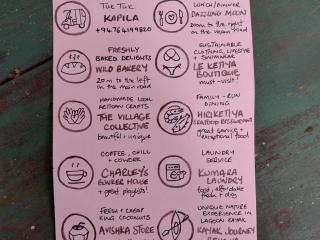 TUK TUK
KAPILA
+94764199820
FRESHLY
BAKED DELIGHTS
WILD BAKERY
20m to the left
on the main road
HANDMADE LOCAL
ARTISAN CRAFTS
THE VILLAGE
COLLECTIVE
beautiful + unique
COFFEE, CHILL
+ COWORK
CHARLEY'S
BUNKER HOUSE
+ great playlist
FRESH + CHEAP
KING COCONUTS
AVISHKA STORE
LUNCH/DINNER
DAZZLING MOON
to the right
on the main road
SUSTAINABLE
CLOTHING, LIFESTYLE
+ SWIMWEAR
LE KETIYA
BOUTIQUE
must-visit!
FAMILY-RUN
DINING
HIRIKETIYA
SEAFOOD RESTAURANT
great service +
exceptional food
LAUNDRY
SERVICE
KUMARA
LAUNDRY
good, affordable
fresh + dry
UNIQUE NATURE
EXPERIENCE IN
LAGOON
KAYAK JOURNEY